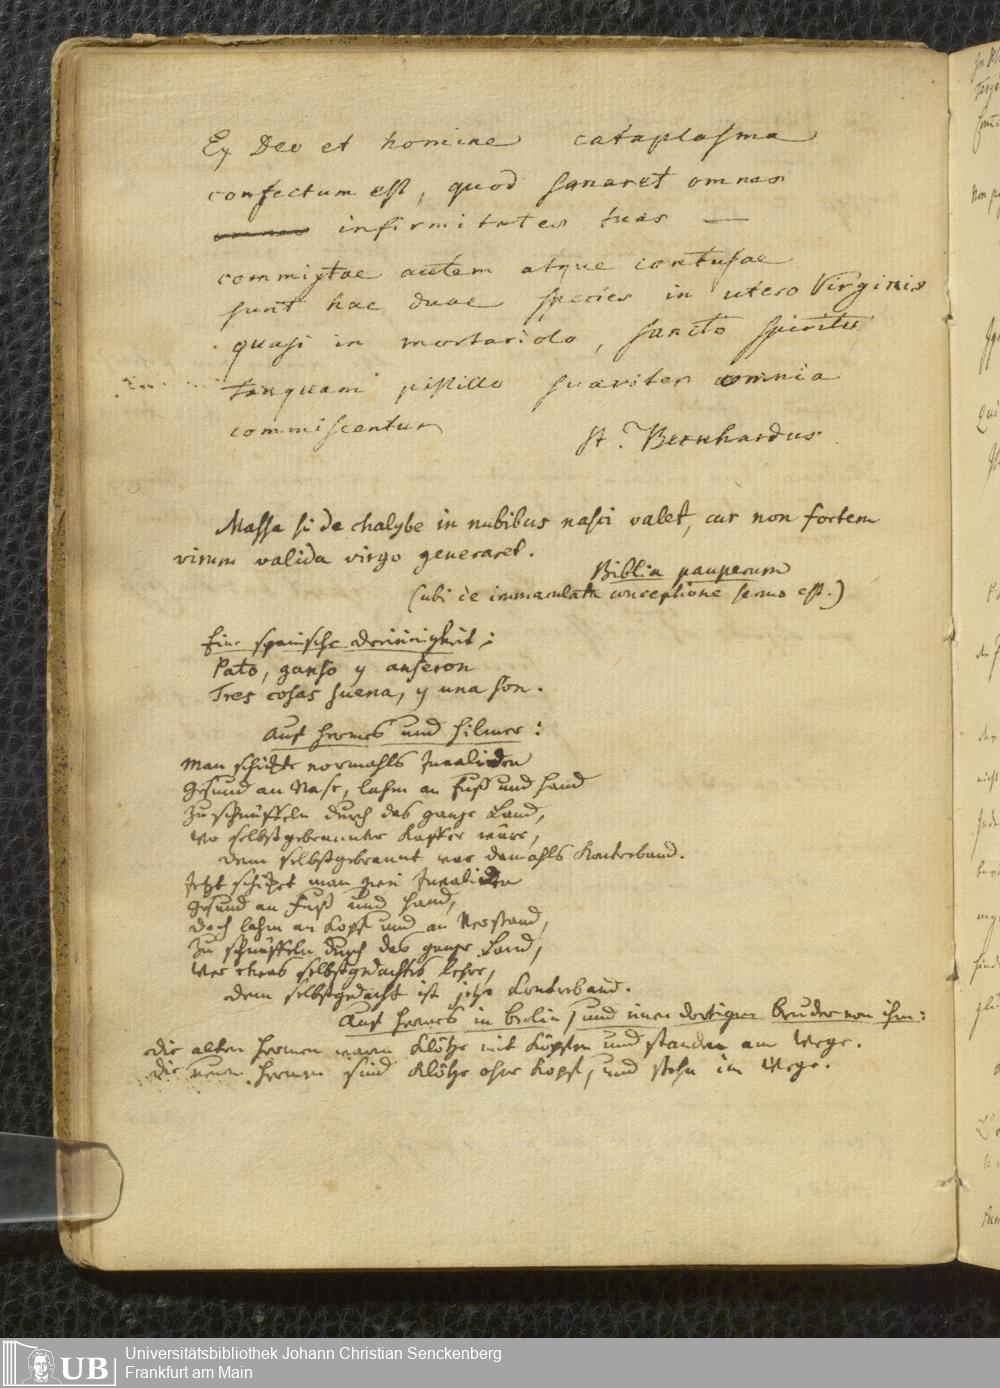 Ex Deo et homine cataplasma
confectum est, quod sanaret omnes
infirmitates tuas —
commixtae autem atque contusae
sunt hae duae species in utero Virginis
quasi in mortariolo, sancto spiritu
tanquam pistillo suaviter omnia
commiscentur
St. Bernhardus.
Massa si de chalybe in nubibus nasci valet, cur non fortem
virum valida virgo generaret.
Biblia pauperum
(ubi de immaculata conceptione sermo est.)
Eine spanische Dreieinigkeit:
Pato, ganso y anseron
Tres cosas suena, y una son.
Auf Hermes und Hilmer:
Man schickte vormahls Invaliden
Gesund an Nase, lahm an Fuß und Hand
Zu schnüffeln durch das ganze Land,
Wo selbstgebrannter Kaffee wäre,
denn selbstgebrannt war damahls Kontreband.
Jetzt schickt man zwei Invaliden
Gesund an Fuß und Hand,
Doch lahm an Kopf und an Verstand,
Zu schnüffeln durch das ganze Land,
Wer etwas selbstgedachtes lehre,
denn selbstgedacht ist jetzt Kontreband.
Auf Hermes in Berlin, und einen dortigen Bruder von ihm:
die alten Hermen waren Klötze mit Köpfen und standen am Wege.
die neuen Hermen sind Klötze ohne Kopf, und stehn im Wege.
UB
Universitätsbibliothek Johann Christian Senckenberg
Frankfurt am Main